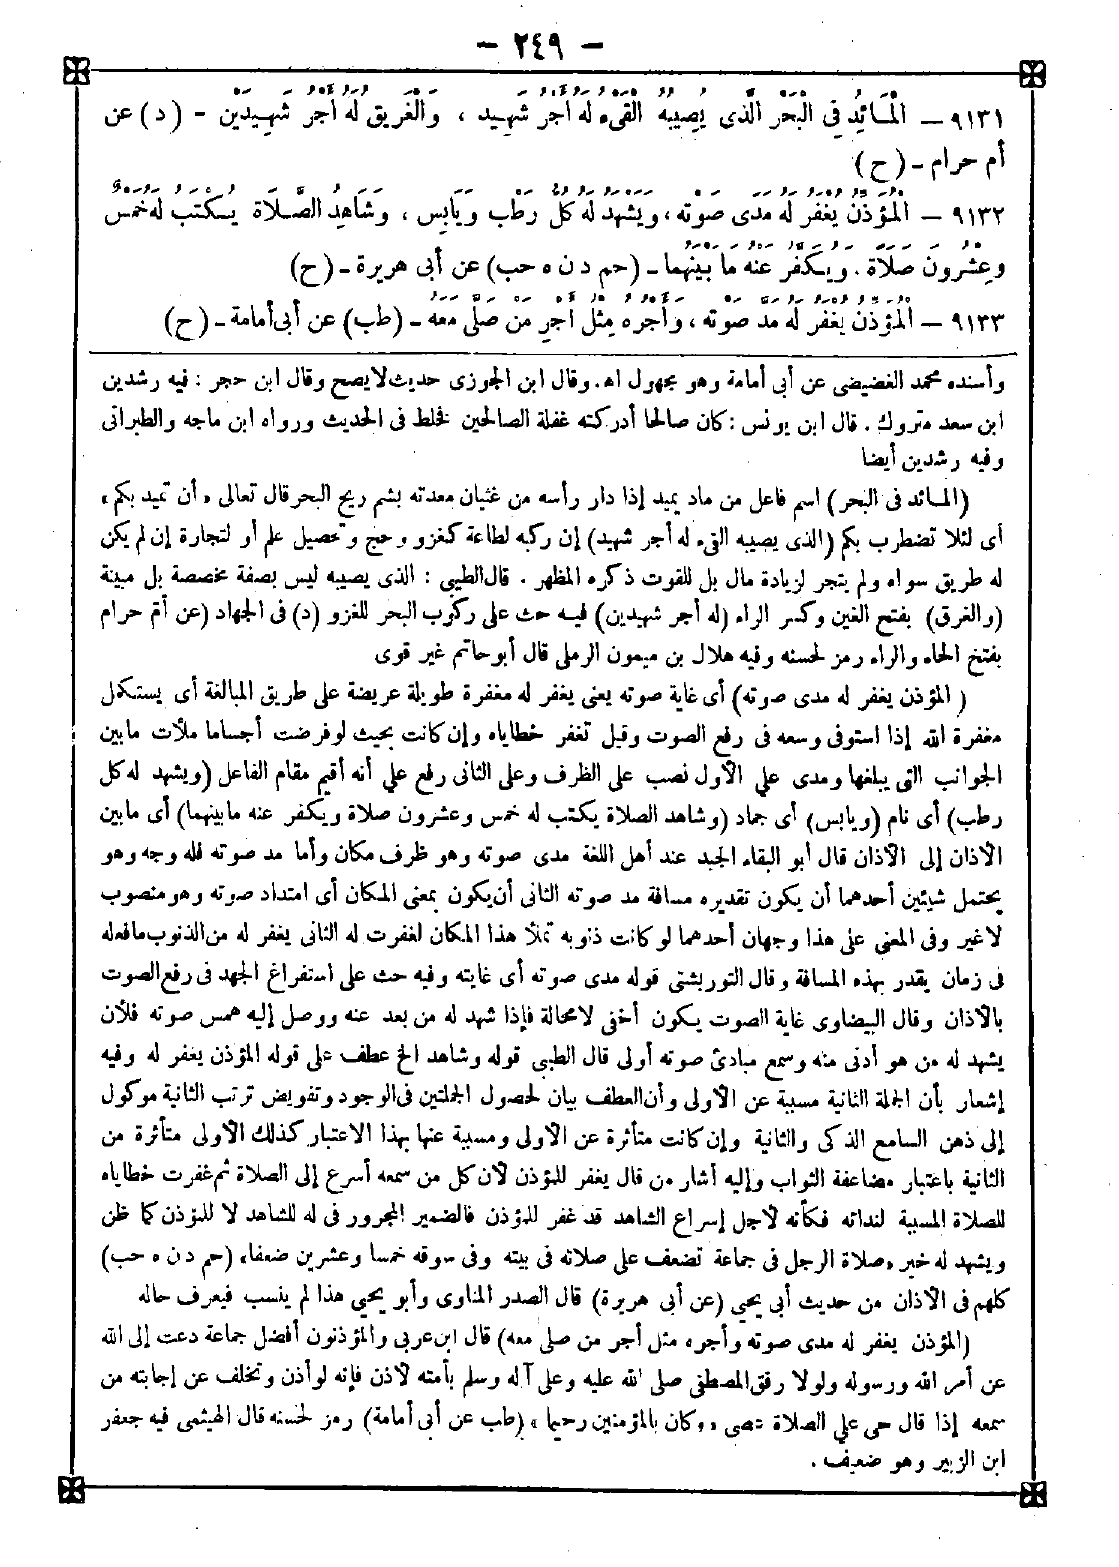 - ٢٤٩ -
٩١٣١ - الْمَائِدُ فِي الْبَحْرِ الَّذِي يُصِيبُهُ الْقَىْءُ لَهُ أَجْرُ شَهِيدٍ ، وَالْغَرِيقُ لَهُ أَجْرُ شَهِيدَيْنِ - (د) عن
أم حرام - (ح)
٩١٣٢ - الْمُؤَذِّنُ يُغْفَرُ لَهُ مَدَى صَوْتِهِ ، وَيَشْهَدُ لَهُ كُلُّ رَطْبٍ وَيَابِسٍ ، وَشَاهِدُ الصَّلَاةِ يُكْتَبُ لَهُ خَمْسٌ
وَعِشْرُونَ صَلَاةً . وَيُكَفَّرُ عَنْهُ مَا بَيْنَهُمَا - (حم د ن ه حب) عن أبى هريرة - (ح)
٩١٣٣ - الْمُؤَذِّنُ يُغْفَرُ لَهُ مَدَّ صَوْتِهِ ، وَأَجْرُهُ مِثْلُ أَجْرِ مَنْ صَلَّى مَعَهُ - (طب) عن أبى أمامة - (ح)
وأسنده محمد الغضيضى عن أبى أمامة وهو مجهول اه. وقال ابن الجوزى حديث لا يصح وقال ابن حجر : فيه رشدين
ابن سعد متروك . قال ابن يونس : كان صالحا أدركته غفلة الصالحين فخلط فى الحديث ورواه ابن ماجه والطبرانى
وفيه رشدين أيضا
(المائد فى البحر) اسم فاعل من ماد يميد إذا دار رأسه من غثيان معدته بشم ريح البحر قال تعالى «أن تميد بكم»
أى لئلا تضطرب بكم (الذى يصيبه القىء له أجر شهيد) إن ركبه لطاعة كغزو وحج وتحصيل علم أو لتجارة إن لم يكن
له طريق سواه ولم يتجر لزيادة مال بل للقوت ذكره المظهر . قال الطيبى : الذى يصيبه ليس بصفة مخصصة بل مبينة
(والغرق) بفتح الغين وكسر الراء (له أجر شهيدين) فيه حث على ركوب البحر للغزو (د) فى الجهاد (عن أم حرام
بفتح الحاء والراء رمز لحسنه وفيه هلال بن ميمون الرملى قال أبو حاتم غير قوى
( المؤذن يغفر له مدى صوته) أى غاية صوته يعنى يغفر له مغفرة طويلة عريضة على طريق المبالغة أى يستكمل
مغفرة الله إذا استوفى وسعه فى رفع الصوت وقيل تغفر خطاياه وإن كانت بحيث لو فرضت أجساما ملأت ما بين
الجوانب التى يبلغها ومدى على الأول نصب على الظرف وعلى الثانى رفع على أنه أقيم مقام الفاعل (ويشهد له كل
رطب) أى نام (ويابس) أى جماد (وشاهد الصلاة يكتب له خمس وعشرون صلاة ويكفر عنه ما بينهما) أى ما بين
الأذان إلى الأذان قال أبو البقاء الجيد عند أهل اللغة مدى صوته وهو ظرف مكان وأما مد صوته فله وجه وهو
يحتمل شيئين أحدهما أن يكون تقديره مسافة مد صوته الثانى أن يكون بمعنى المكان أى امتداد صوته وهو منصوب
لا غير وفى المعنى على هذا وجهان أحدهما لو كانت ذنوبه تملأ هذا المكان لغفرت له الثانى يغفر له من الذنوب ما فعله
فى زمان يقدر بهذه المسافة وقال التوربشتى قوله مدى صوته أى غايته وفيه حث على استفراغ الجهد فى رفع الصوت
بالأذان وقال البيضاوى غاية الصوت يكون أخفى لا محالة فإذا شهد له من بعد عنه ووصل إليه همس صوته فلأن
يشهد له من هو أدنى منه وسمع مبادئ صوته أولى قال الطيبى قوله وشاهد الخ عطف على قوله المؤذن يغفر له وفيه
إشعار بأن الجملة الثانية مسببة عن الأولى وأن العطف بيان لحصول الجملتين فى الوجود وتفويض ترتب الثانية موكول
إلى ذهن السامع الذكى والثانية وإن كانت متأثرة عن الأولى ومسببة عنها بهذا الاعتبار كذلك الأولى متأثرة من
الثانية باعتبار مضاعفة الثواب وإليه أشار من قال يغفر للمؤذن لأن كل من سمعه أسرع إلى الصلاة ثم غفرت خطاياه
للصلاة المسببة لندائه فكأنه لأجل إسراع الشاهد قد غفر للمؤذن فالضمير المجرور فى له للشاهد لا للمؤذن كما ظن
ويشهد له خبر «صلاة الرجل فى جماعة تضعف على صلاته فى بيته وفى سوقه خمسا وعشرين ضعفا» (حم د ن ه حب)
كلهم فى الأذان من حديث أبى يحيى (عن أبى هريرة) قال الصدر المناوى وأبو يحيى هذا لم ينسب فيعرف حاله
(المؤذن يغفر له مدى صوته وأجره مثل أجر من صلى معه) قال ابن عربى والمؤذنون أفضل جماعة دعت إلى الله
عن أمر الله ورسوله ولولا رفق المصطفى صلى الله عليه وعلى آله وسلم بأمته لأذن فإنه لو أذن وتخلف عن إجابته من
سمعه إذا قال حى على الصلاة عصى «وكان بالمؤمنين رحيما» (طب عن أبى أمامة) رمز لحسنه قال الهيثمى فيه جعفر
ابن الزبير وهو ضعيف .